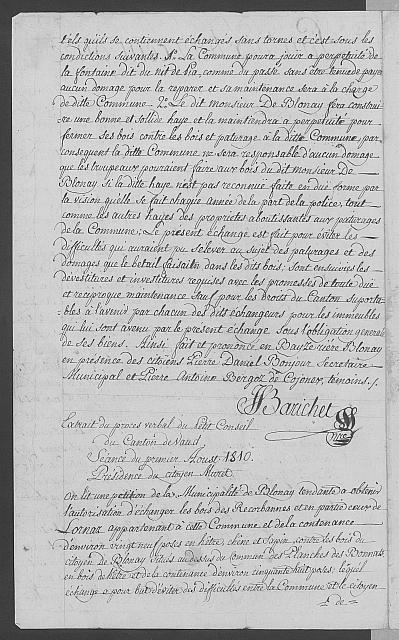 tels quils se contiennent échangés sans tornes et c'est sous les
conditions suivantes. 1°. La Commune poura jouir a perpetuité de
la fontaine dit du nit de Sia, comme du passé sans etre tenue de payer
aucun domage pour la reparer et sa maintenance sera à la charge
de ditte Commune. 2°. Le dit monsieur De Blonay fera construi-
re une bonne et sollide haye et la maintiendra a perpetuité pour
fermer ses bois contre les bois et paturage à la ditte Commune, par
consequent la ditte Commune ne sera responsable d'aucun domage
que les troupeaux pouraient faire aux bois du dit monsieur De
Blonay si la ditte haye n'est pas reconnue faite en duë forme par
la vision qu'elle se fait chaque année de la part de la police, tout
comme les autres hayes des proprietés aboutissantes aux paturages
de la Commune; Le present échange est fait pour éviter les
difficultes qui auraient pu s'elever au sujet des paturages et des
domages que le betail faisait dans les dits bois; Sont ensuivies les
dévestitures et investitures requises avec les promesses de toute duë
et reciproque maintenance Sauf pour les droits du Canton Suporta-
bles à l'avenir par chacun des dits échangeurs pour les immeubles
qui lui sont avenu par le present échange Sous l'obligation generale
de ses biens. Ainsi fait et prononcé en Bauze riére Blonay
en présence des citoiens Pierre Daniel Bonjour Secretaire
Municipal et Pierre Antoine Bergoz de Cojonex, témoins./.
Barichet
nre
Extrait du procès verbal du Petit Conseil
du Canton de Vaud,
Séance du premier Aoust 1810.
Présidence du citoyen Muret.
On lit une petition de la Municipalité de Blonay tendante a obtenir
l'autorisation d'échanger les bois des Recorbannes et en partie ceux de
Lornax appartenant à cette Commune et de la contenance
d'environ vingt neuf poses en hêtre, chêne et Sapin contre les bois du
citoyen de Blonay situés au dessus du commun des Planches des Bonnats,
en bois de hêtre et de la contenance d'environ cinquante huit poses; lequel
échange a pour but d'éviter des difficultés entre la Commune et le citoyen
de